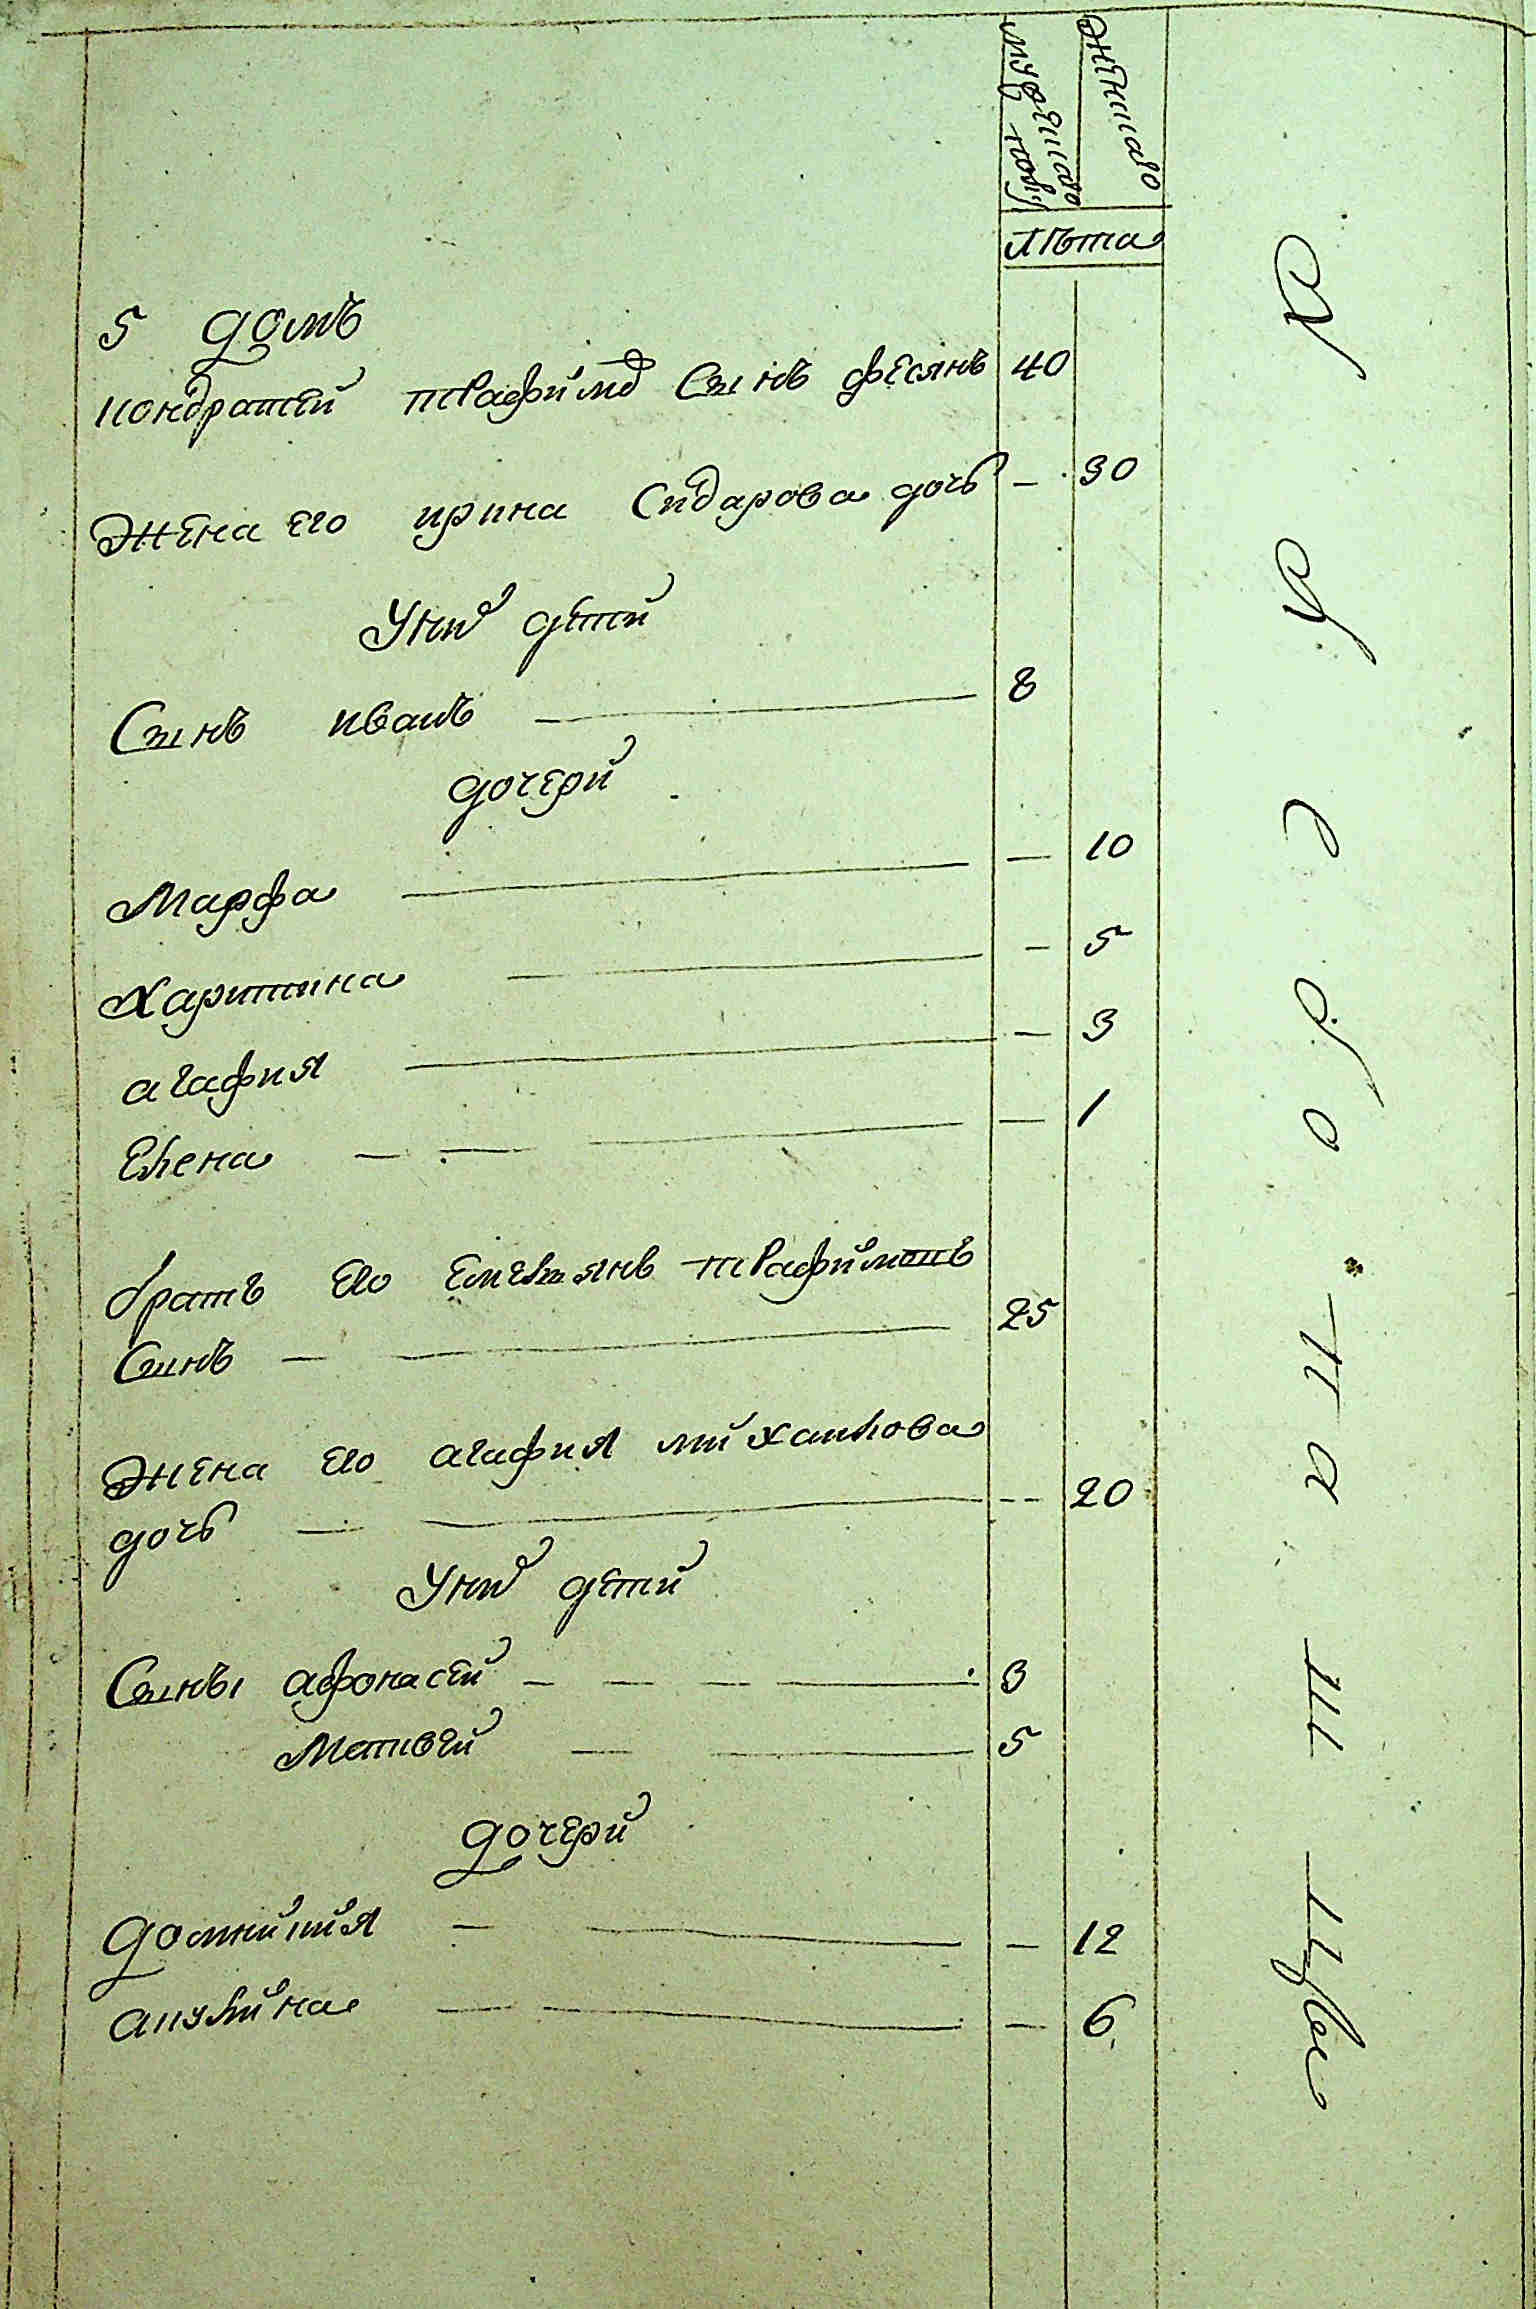 мужескаго полу
женскаго
лѣта
5 домъ
кондратей трафимо сынъ фесянъ 40
жена его ирина сидарова дочь — 30
У них дети
Сынъ иванъ — 8
дочери
Марфа — — 10
харитина — — 5
агафия — — 3
Елена — — — — 1
братъ его емельянъ трафимовъ
сынъ — — 25
жена его агафия михаилова
дочь — — — 20
У них дети
Сыны афонасей — — — — 3
Матвей — — 5
дочери
домникия — — — 12
акулина — — — 6